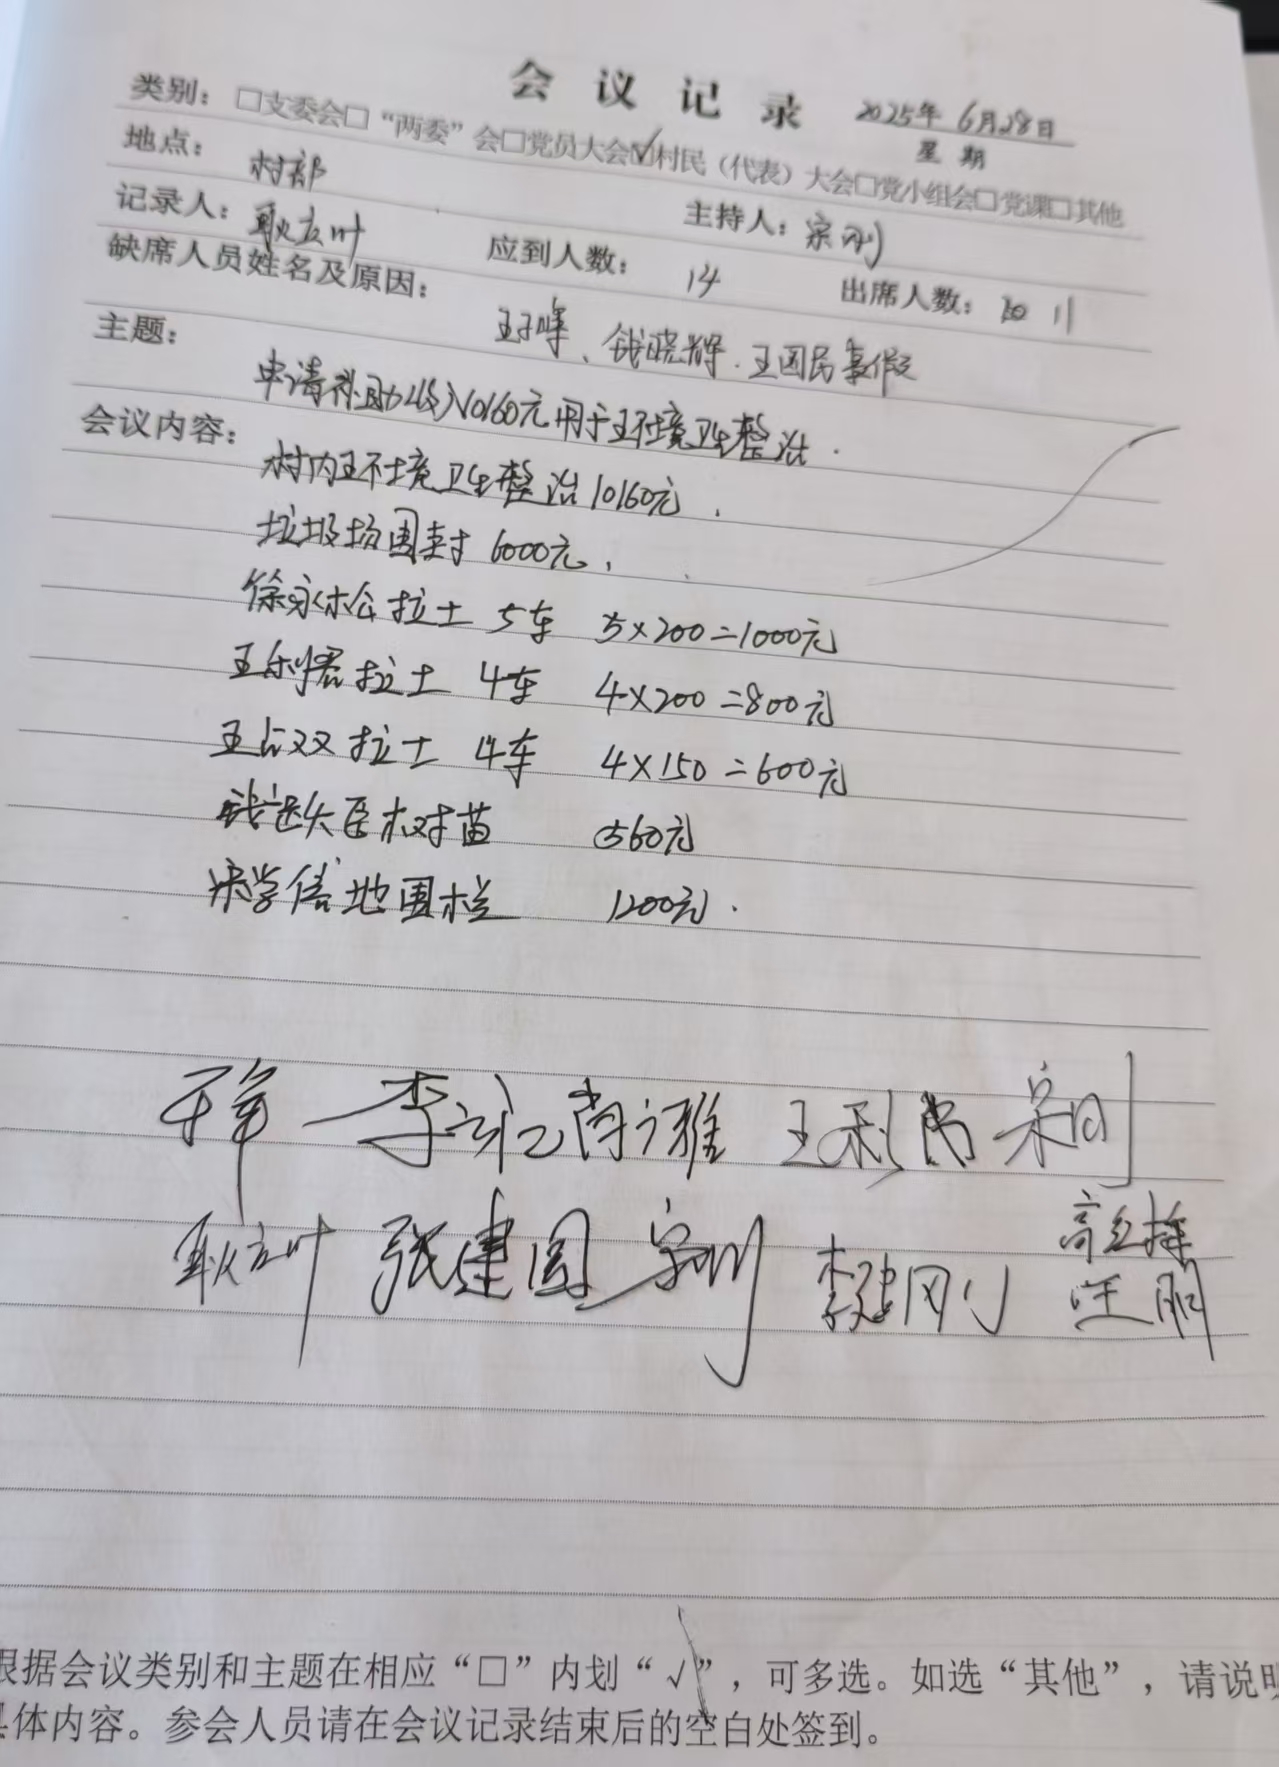 会议记录 2025年6月28日
星期
类别：□支委会□“两委”会□党员大会☑村民（代表）大会□党小组会□党课□其他
地点：村部 主持人：宗刚
记录人：耿立叶 应到人数：14 出席人数：11
缺席人员姓名及原因：王峰、钱晓辉.王国民事假
主题：申请补助收入10160元用于环境卫生整治.
会议内容：村内环境卫生整治10160元，
垃圾场围封 6000元，
徐永松拉土 5车 5×200=1000元
王利君拉土 4车 4×200=800元
王占双拉土 4车 4×150=600元
树苗 560元
地围栏 1200元.
李 王利 宗刚
耿立叶 张建国 李建刚 汪丽
根据会议类别和主题在相应“□”内划“√”，可多选。如选“其他”，请说明
具体内容。参会人员请在会议记录结束后的空白处签到。